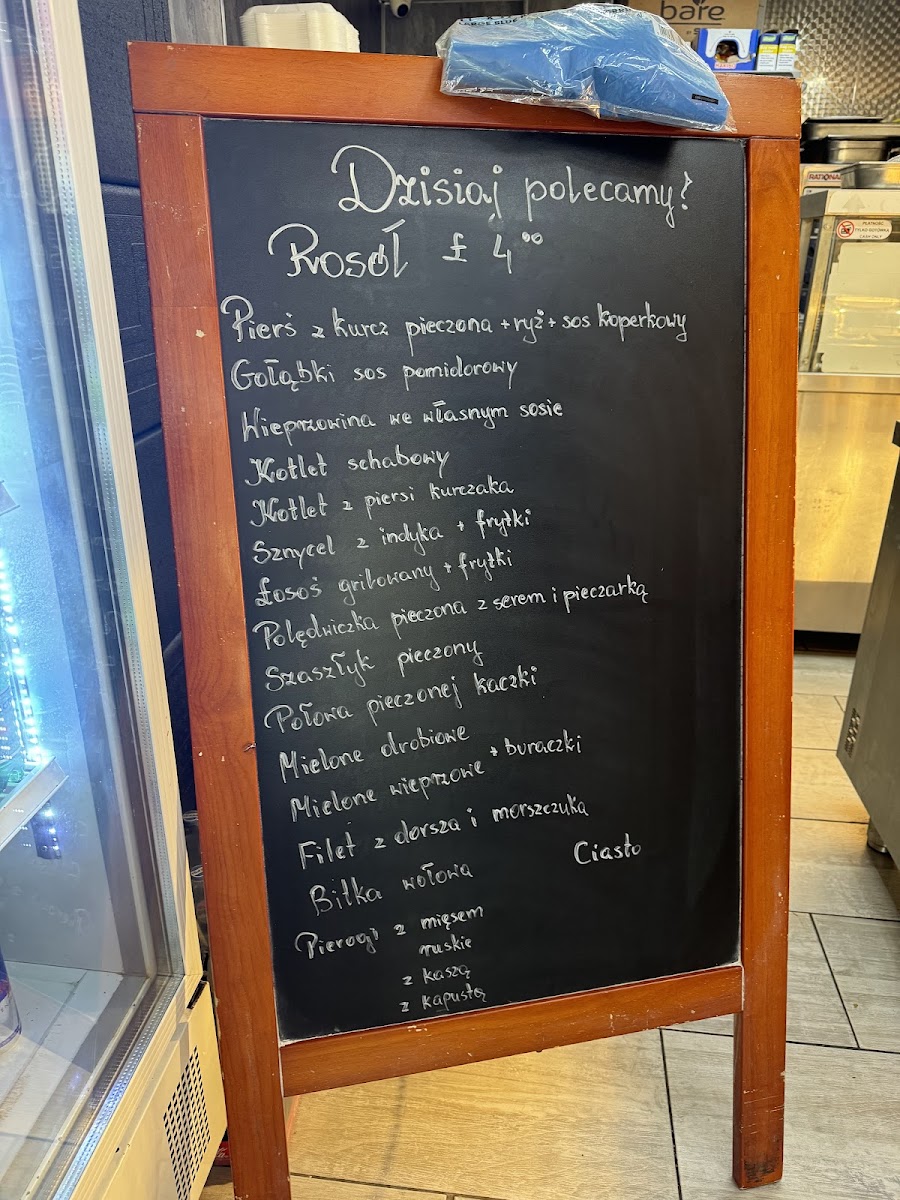 bare
RATIONAL
PŁATNOŚĆ
TYLKO GOTÓWKĄ
CASH ONLY
Dzisiaj polecamy!
Rosół £ 4.00
Pierś z kurcz pieczona + ryż + sos koperkowy
Gołąbki sos pomidorowy
Wieprzowina we własnym sosie
Kotlet schabowy
Kotlet z piersi kurczaka
Sznycel z indyka + frytki
Łosoś grilowany + frytki
Polędwiczka pieczona z serem i pieczarką
Szaszłyk pieczony
Połowa pieczonej kaczki
Mielone drobiowe
Mielone wieprzowe + buraczki
Filet z dorsza i morszczuka
Ciasto
Bitka wołowa
Pierogi z mięsem
ruskie
z kaszą
z kapustą